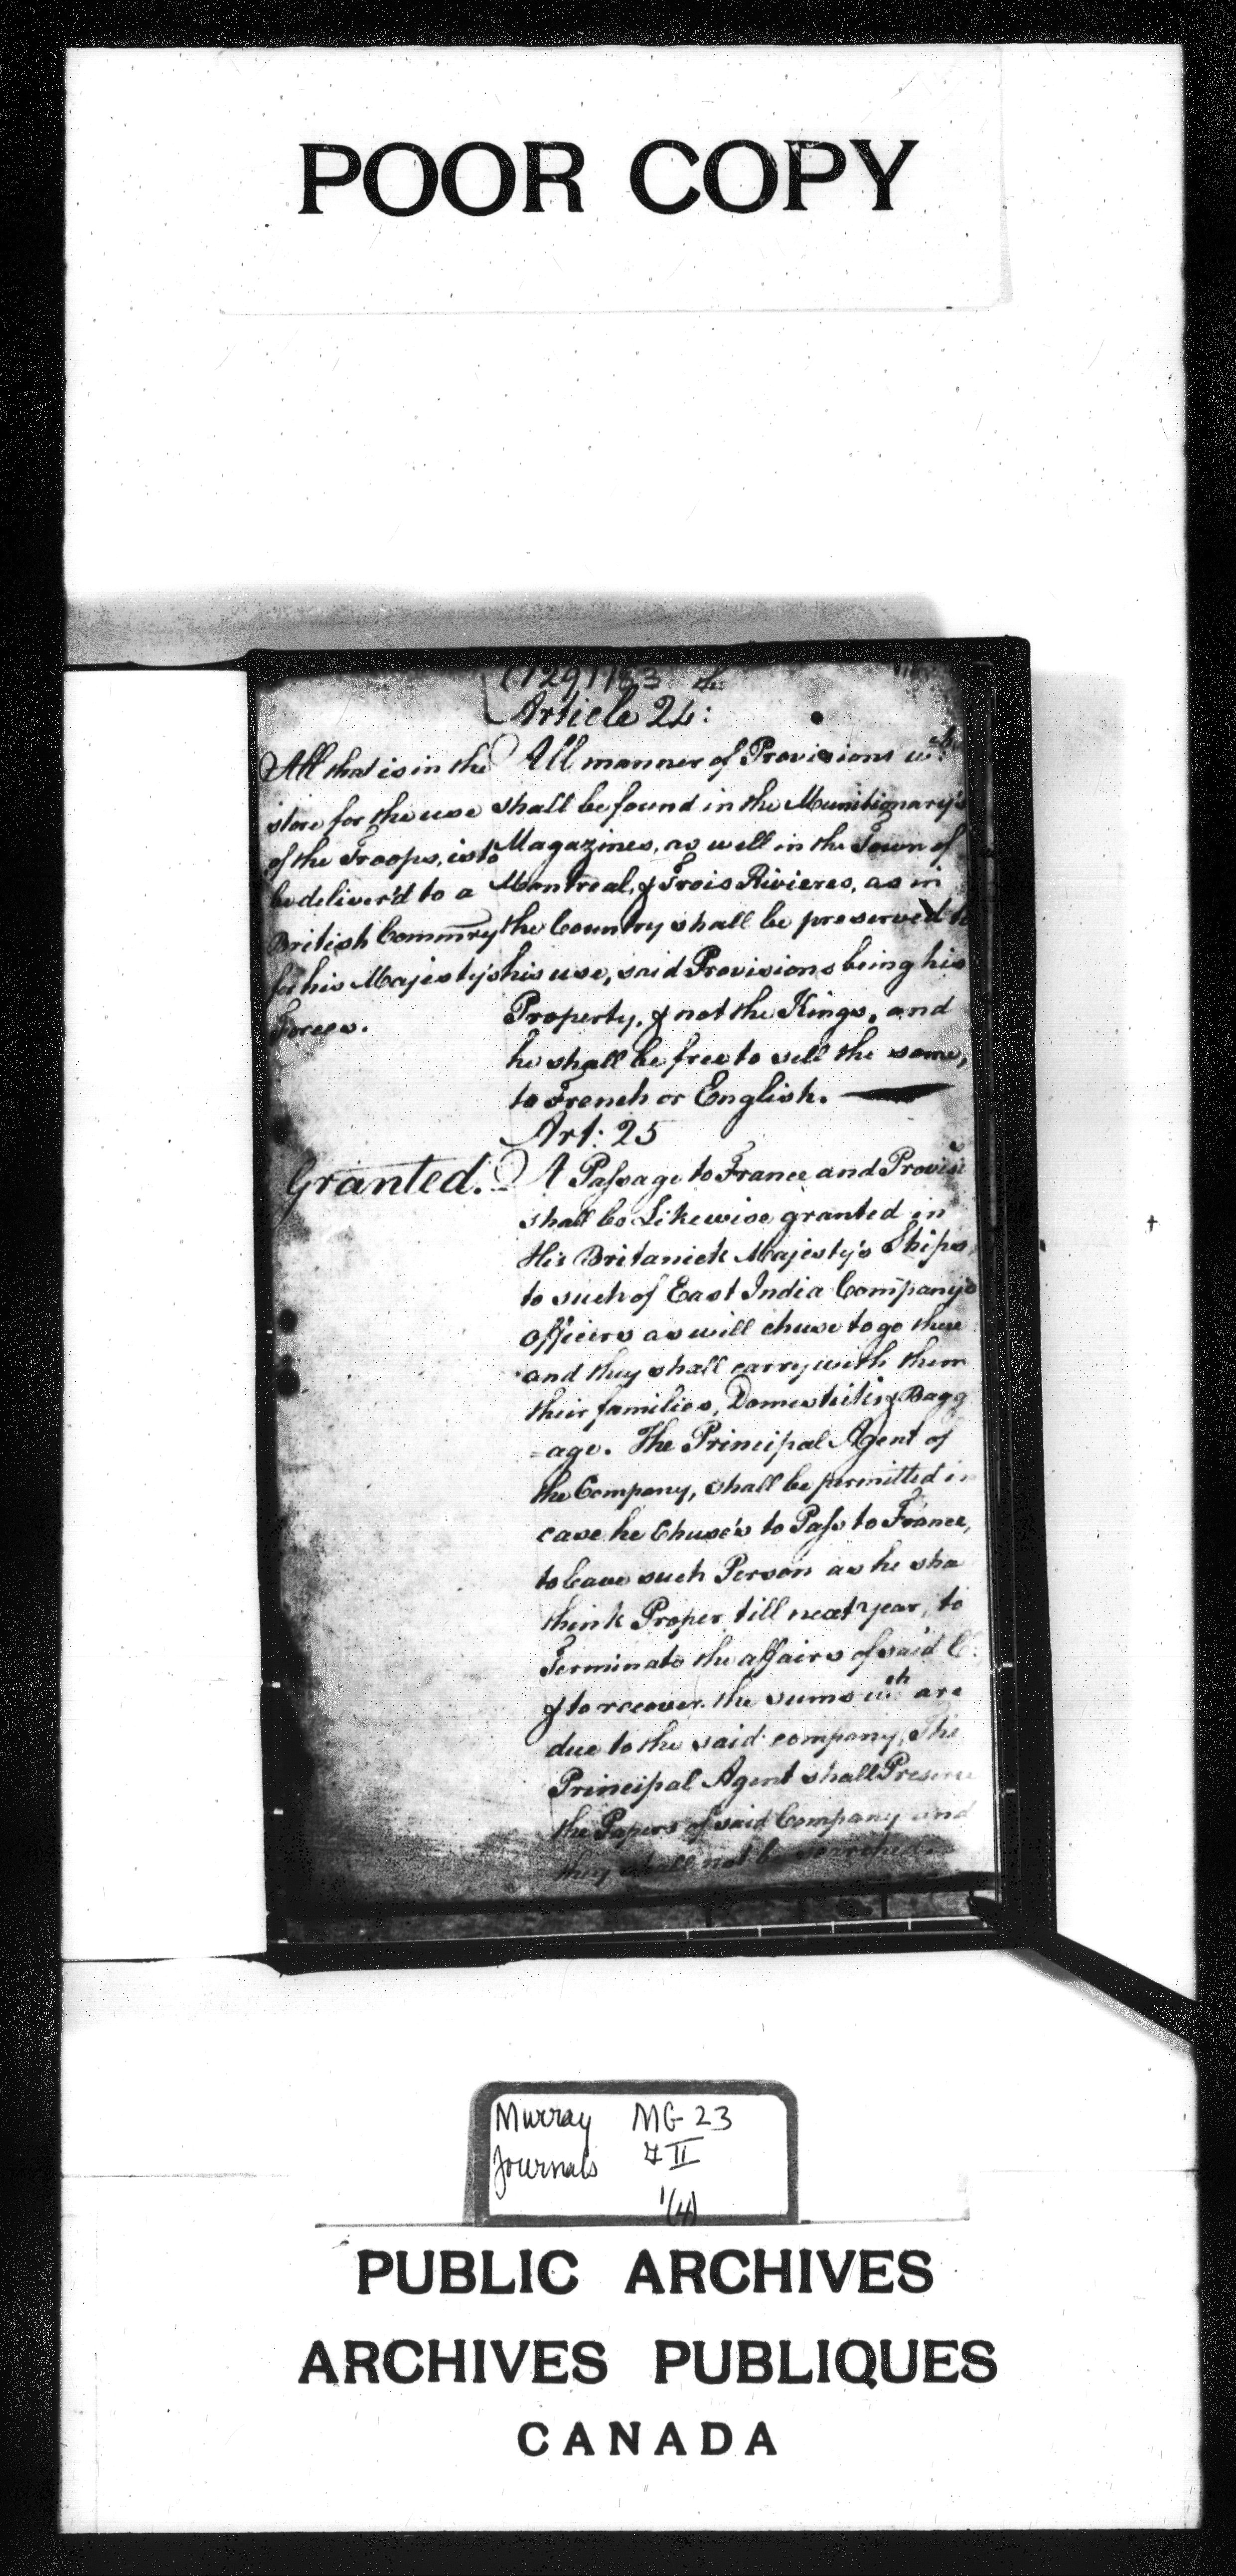 POOR COPY
(129) 133
Article 24:
All that is in the
store for the use
of the Troops, is to
be deliver'd to a
British Commry
for his Majesty's
Forces.
All manner of Provisions wch
shall be found in the Munitionary's
Magazines, as well in the Town of
Montreal, & Trois Rivieres, as in
the Country shall be preserved to
his use, said Provisions being his
Property, & not the Kings, and
he shall be free to sell the same,
to French or English.
Art: 25
Granted.
A Passage to France and Provisi
shall be Likewise granted in
His Britanick Majesty's Ships
to such of East India Company's
officers as will chuse to go there:
and they shall carry with them
their families, Domesticks & Bagg
=age. The Principal Agent of
the Company, shall be permitted in
case he Chuse's to Pass to France,
to leave such Person as he sha
think Proper till next year, to
Terminate the affairs of said C:
& to recover the sums wch: are
due to the said company, The
Principal Agent shall Preserve
the Papers of said Company and
they shall not be searched.
Murray MG 23
Journals II
1(4)
PUBLIC ARCHIVES
ARCHIVES PUBLIQUES
CANADA